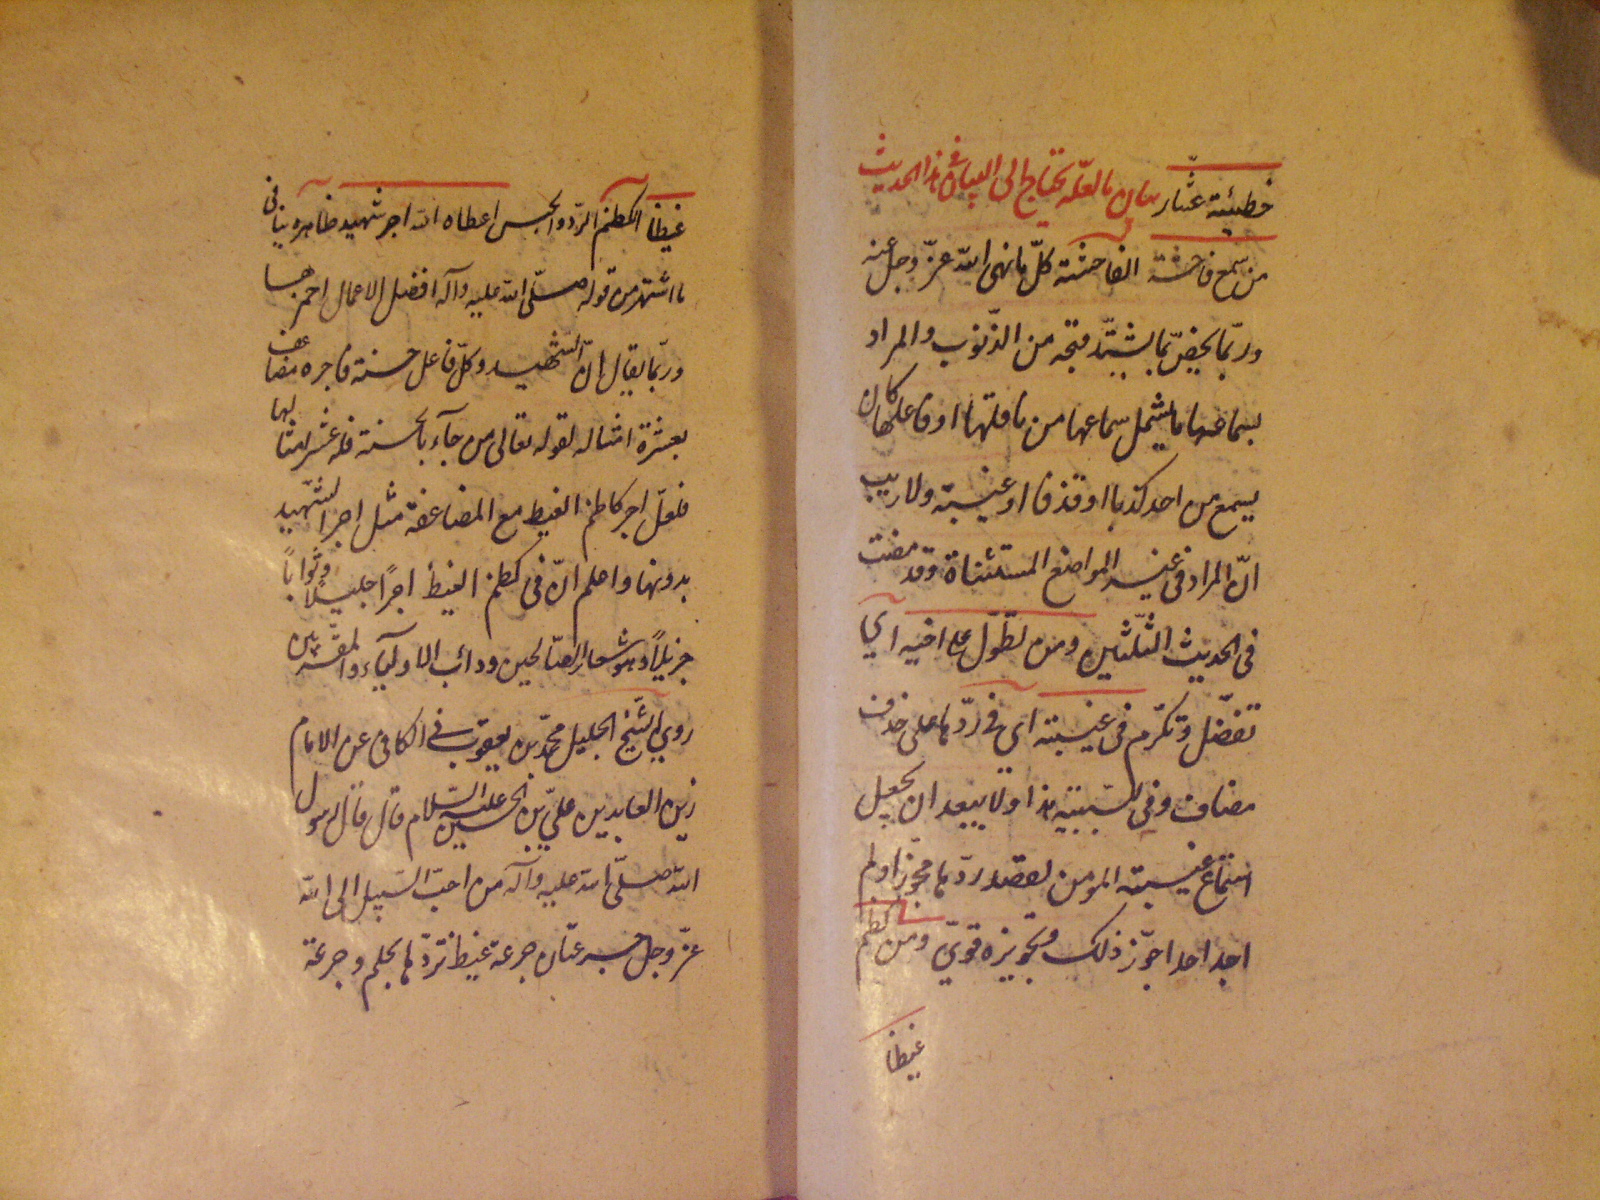 خطيئة عشّار بيان ما لعلّه يحتاج الى البيان فى هذا الحديث
من سمع فاحشة الفاحشة كلّ ما نهى الله عزّ وجل عنه
وربّما يخصّ بما يشتدّ قبحه من الذّنوب والمراد
بسماعها ما يشمل سماعها من ناقلها او فاعلها كان
يسمع من احد كذبا او قذفا او غيبة ولا ريب
انّ المراد فى غير المواضع المستثناة وقد مضت
فى الحديث الثلثين ومن تطوّل على اخيه اي
تفضّل وتكرّم فى غيبته اي فى ردّها على حذف
مضاف وفى للسّببيّة هذا ولا يبعد ان يجعل
استماع غيبة المومن لقصد ردّها مجوّزا ولم
اجد احدا جوّز ذلك وتجويزه قويّ ومن كظم
غيظا
غيظا الكظم الردّ والحبس اعطاه الله اجر شهيد ظاهره ينافى
ما اشتهر من قوله صلّى الله عليه وآله افضل الاعمال احمزها
وربّما يقال انّ الشّهيد وكلّ فاعل حسنة فاجره مضاعف
بعشرة امثاله لقوله تعالى من جآء بالحسنة فله عشر امثالها
فلعلّ اجر كاظم الغيظ مع المضاعفة مثل اجر الشّهيد
بدونها واعلم انّ فى كظم الغيظ اجرًا جليلًا وثوابًا
جزيلًا وهو شعار الصّالحين ودائب الاوليآء والمقرّبين
روى الشّيخ الجليل محمّد بن يعقوب فى الكافى عن الامام
زين العابدين عليّ بن الحسين عليه السّلام قال قال رسول
الله صلّى الله عليه وآله من احبّ السّبيل الى الله
عزّ وجل جرعتان جرعة غيظ تردّها بحلم وجرعة